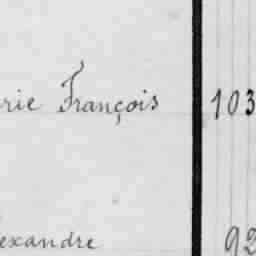 rie François 103
exandre 92